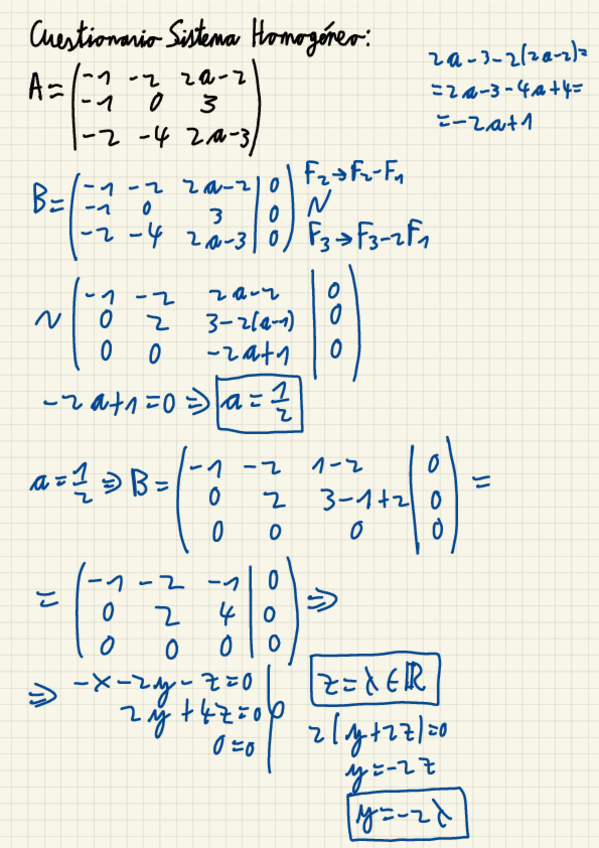 Cuestionario Sistema Homogéneo:
A = (-1 -2 2a-2
-1 0 3
-2 -4 2a-3)
2a-3-2(2a-2)=
=2a-3-4a+4=
=-2a+1
B = (-1 -2 2a-2 | 0
-1 0 3 | 0
-2 -4 2a-3 | 0)
F2→F2-F1
~
F3→F3-2F1
~ (-1 -2 2a-2 | 0
0 2 3-2(a-1) | 0
0 0 -2a+1 | 0)
-2a+1=0 ⇒ a = 1/2
a = 1/2 ⇒ B = (-1 -2 1-2 | 0
0 2 3-1+2 | 0
0 0 0 | 0) =
= (-1 -2 -1 | 0
0 2 4 | 0
0 0 0 | 0) ⇒
⇒ -x-2y-z=0
2y+4z=0
0=0
z=λ∈ℝ
2(y+2z)=0
y=-2z
y=-2λ